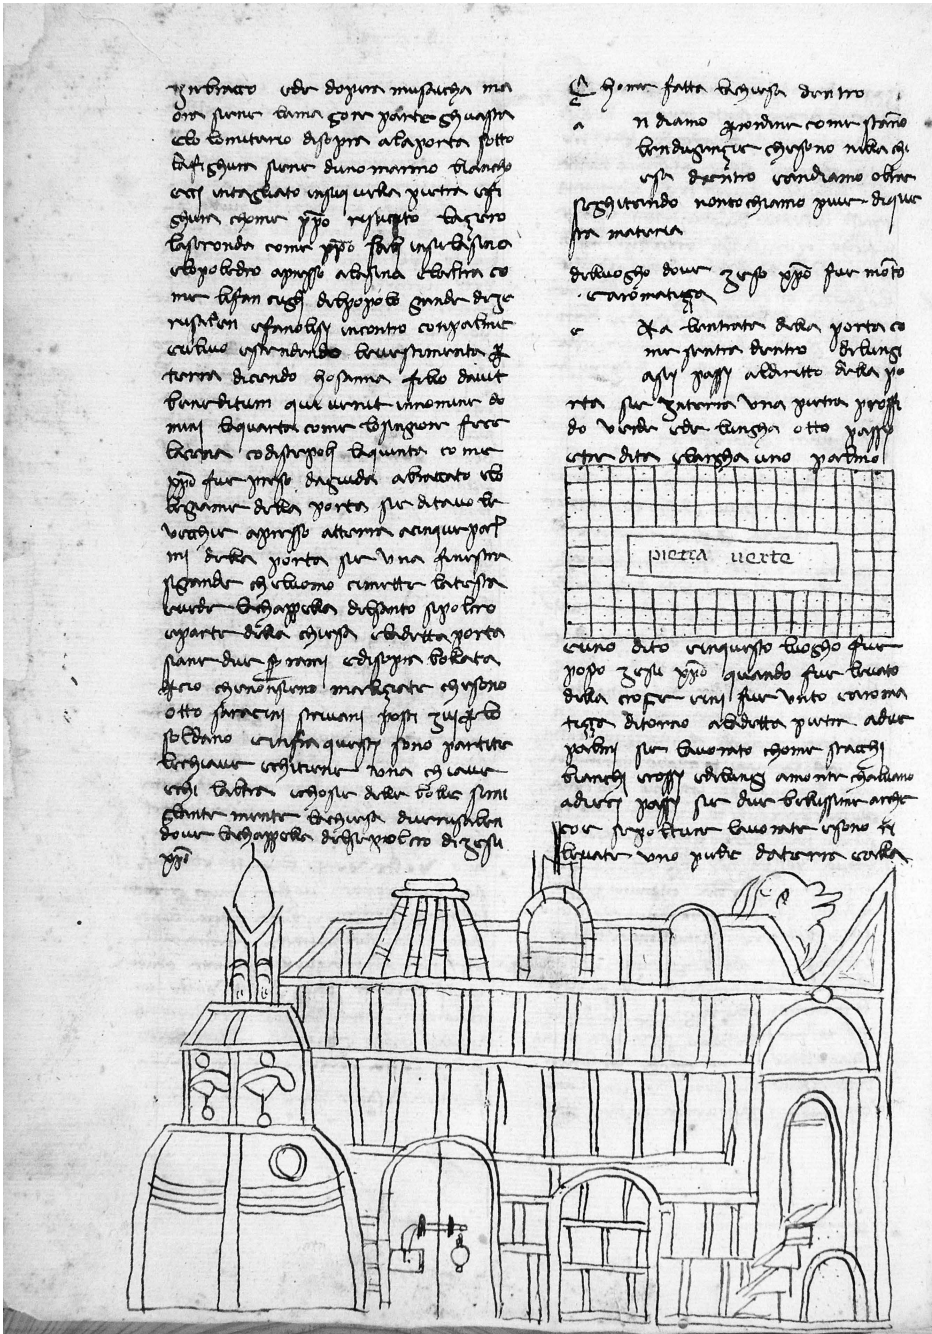 inbraccio ede dopera musaicha ma
ora siene lama gore parte ghuasta
elo lomitario disopra alaporta sotto
lafighura siene duno marmo biancho
ecci intagliato insuquella pietra efi
ghura chome xp̄o resucito lazero
laseconda come xp̄o insulasina
elopoledro apresso alasina elaltra co
me lifanciugli delpopolo grande dize
rusalen efanolisi incontro conpalme
eulivo estendendo levestimenta
terra dicendo hosanna filio davit
beneditum qui venit innomine do
mini laquarta come losingnore fece
lacena codiscepoli laquinta come
xp̄o fue preso dagiuda abraccato elo
legname della porta sie ditavole
vecchie apresso atterra acinque pal
mi della porta sie una finestra
sigrande cheluomo cimette latesta
evede lachappella delsanto sipolcro
eparte della chiesa eladetta porta
siane due edisopra bollata
accio chenonsieno chesono
otto saracini scrivani posti
soldano einfra questi sono partite
lechiave echitiene una chiave
echi laltra echosie delle bolle simi
gliante mente lachiesa dierusalen
dove lachappella delsepolcro dizesu
xp̄o
Chome fatta lachiesa dentro
a ndiamo perordine come stano
lendugenzie chesono nella chi
esa dentro eandiamo oltre
seghitando nontochiamo piue dique
sta materia
delluogho dove zeso xp̄o fue morto
earomatizza
e Ra lentrata della porta co
me sentra dentro dilungi
asei passi aldiritto della po
rta sie interra una pietra proffi
do verde ede lungha otto passi
etre dita elargha uno palmo
pietra verte
euno dito einquesto luogho fue
posto zesu xp̄o quando fue levato
della croce eivi fue unto earoma
tizza ditorno aladetta pietra adue
palmi sie lavorato chome scacchi
bianchi erossi edilungi amonte chalvano
adieci passi sie due bellissime arche
coe sepolture lavorate esono ri
levate uno piede daterra ealla